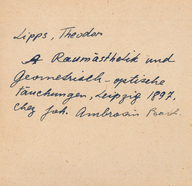 Lipps, Theodor
Raumästhetik und
Geometrisch-optische
Täuschungen, Leipzig 1897.
chez Joh. Ambrosius